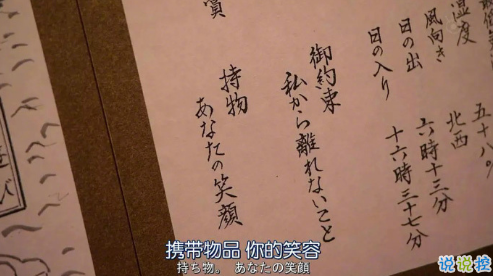 湿度 五十八%
風向き 北西
日の出 六時十三分
日の入り 十六時三十七分
御約束
私から離れないこと
持物
あなたの笑顔
賞
携带物品 你的笑容
持ち物。 あなたの笑顔
说说控